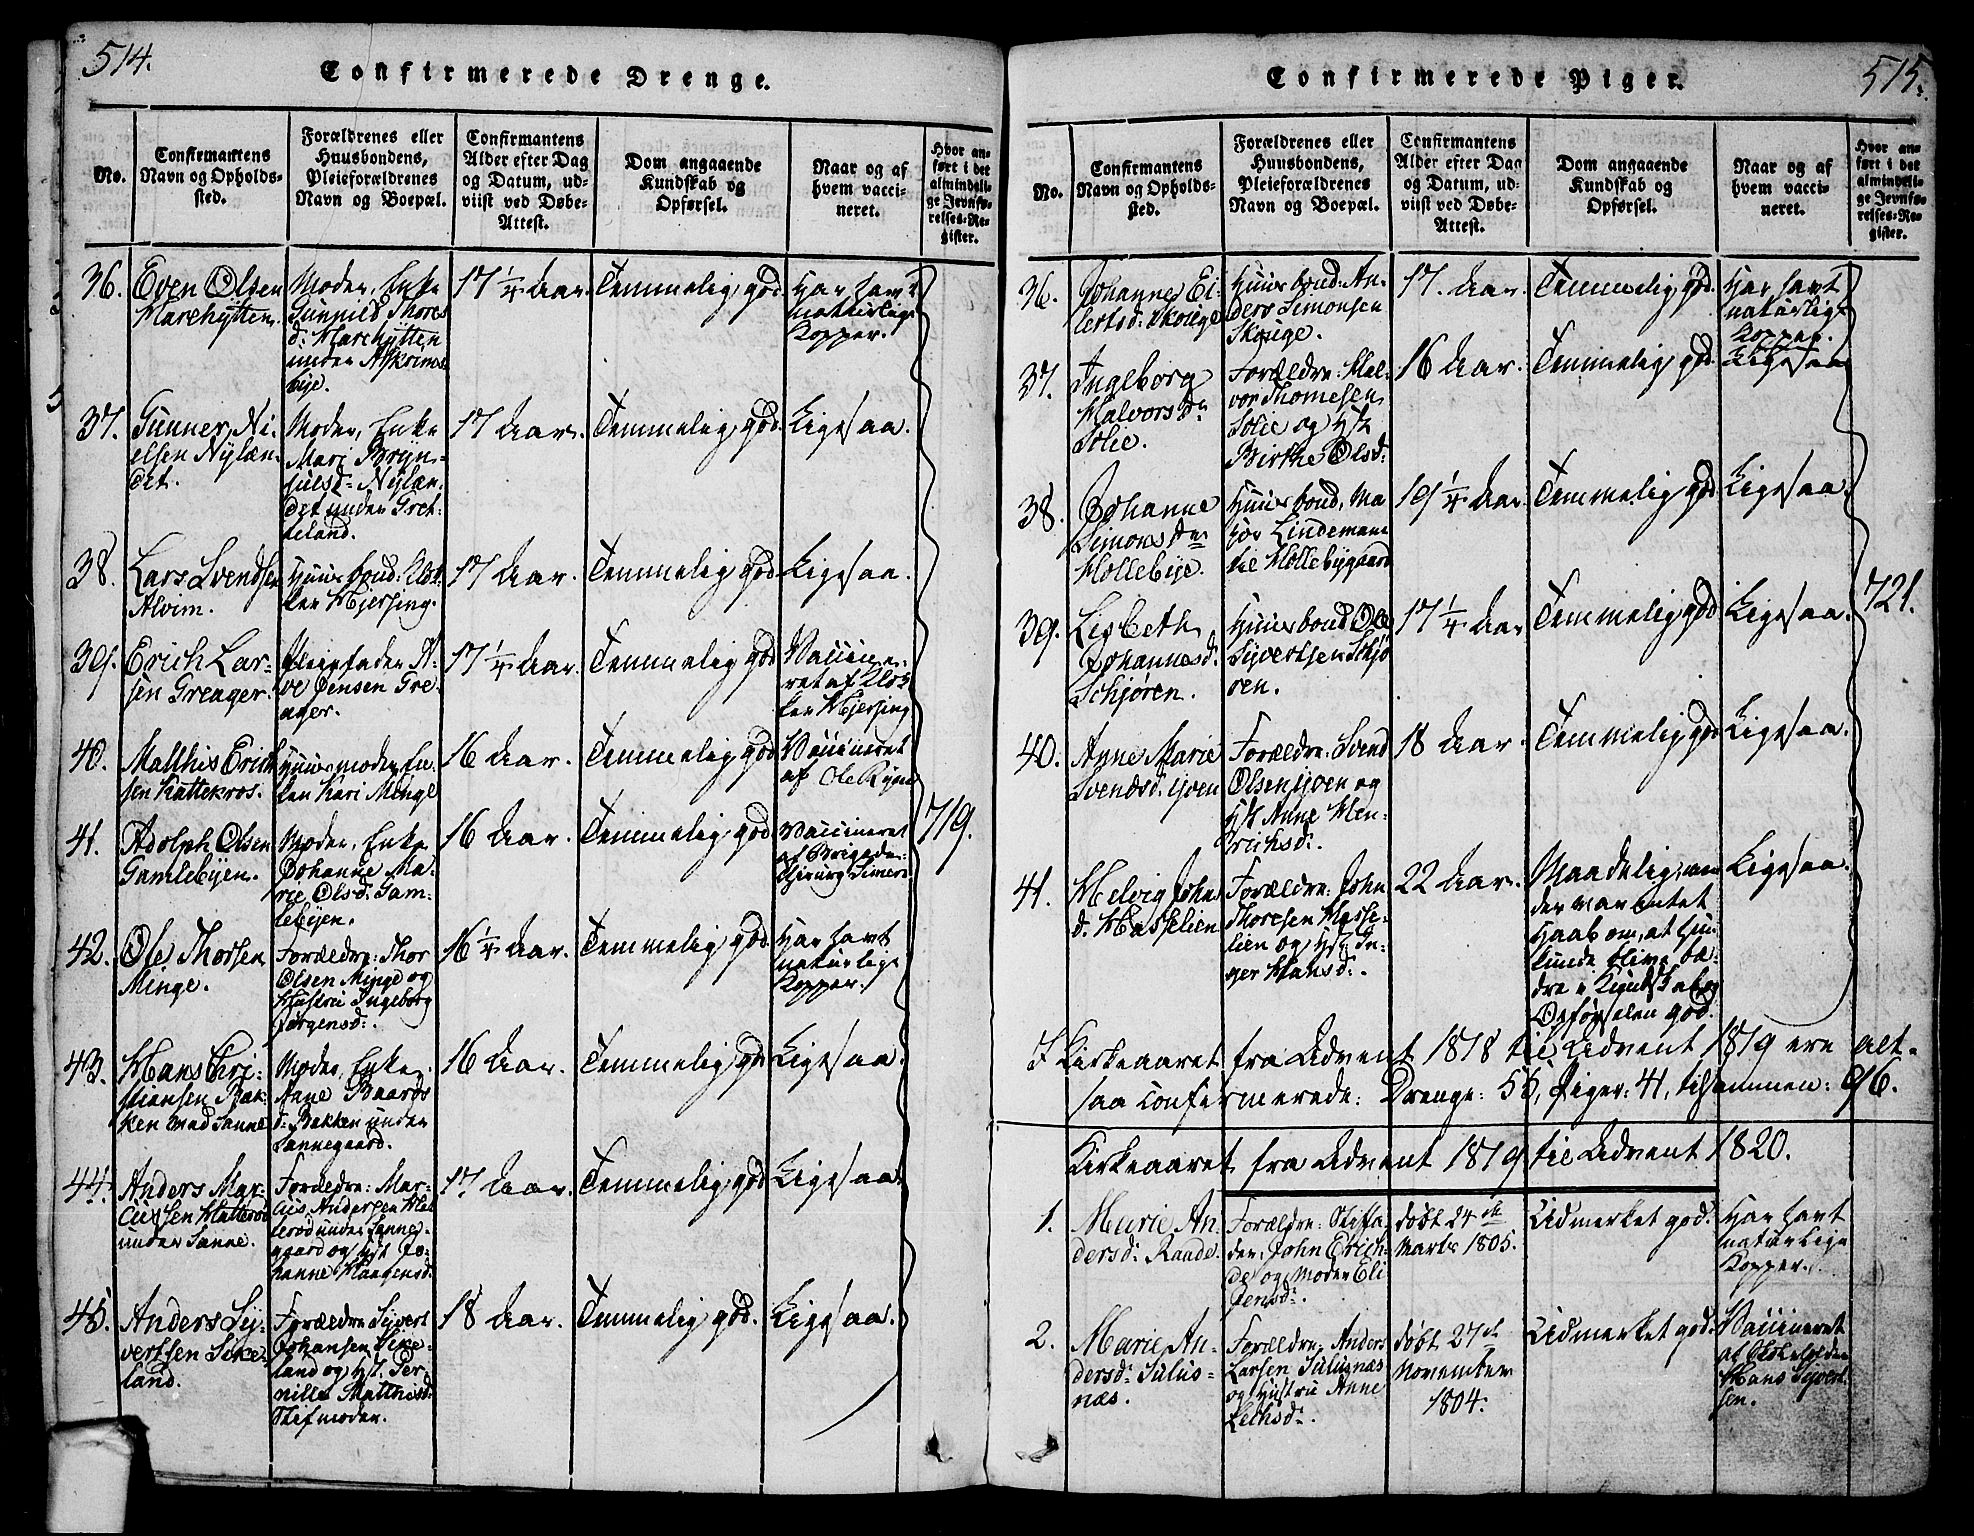 514.
Confirmerede Drenge.
No.
Confirmantens
Navn og Opholds-
sted.
Forældrenes eller
Huusbondens,
Pleieforældrenes
Navn og Boepæl.
Confirmantens
Alder efter Dag
og Datum, ud-
viist ved Døbe-
Attest.
Dom angaaende
Kundskab og
Opførsel.
Naar og af
hvem vacci-
neret.
Hvor an-
ført i det
almindeli-
ge Jevnfø-
relses-Re-
gister.
36.
Even Olsen
Marchytten
Moder, Enke
Gunnild Thores
d: Marchytten
under
bye.
17 1/4 Aar.
Temmelig god
Har havt
naturlige
Kopper.
37.
Gunner Ni-
elsen Nylæn-
det.
Moder, Enke
Mari Bryn-
julsd: Nylæn-
det under Gret-
teland.
17 Aar.
Temmelig god.
Ligesaa.
38.
Lars Svendsen
Alvim.
Huusbond: Klok-
ker Hjersing.
17 Aar.
Temmelig god
Ligesaa.
39.
Erich Lar-
sen Greager.
Pleiefader A-
ve Jensen Gre-
ager.
17 1/4 Aar.
Temmelig god
Vaccine-
ret af Klok-
ker Hjersing
40.
Matthis Erich-
sen Kattekros.
Huusmoder En-
ken Kari Minge
16 Aar.
Temmelig god
Vaccineret
af Ole Ryne
41.
Adolph Olsen
Gamlebyen.
Moder, Enke
Johanne Ma-
rie Olsd: Gam-
lebyen.
16 Aar.
Temmelig god
Vaccineret
af Brigade-
Chirurg
719.
42.
Ole Thorsen
Minge.
Forældre: Thor
Olsen Minge og
Hustru Ingeborg
Jørgensd:.
16 1/4 Aar.
Temmelig god
Har havt
naturlige
Kopper.
43.
Hans Chri-
stiansen Bak-
ken ved Sanne
Moder, Enke
Anne Baards
d: Bakken under
Sannegaard.
16 Aar.
Temmelig god
Ligesaa.
44.
Anders Mar-
cussen Hatterød
under Sanne.
Forældre: Mar-
cus Andersen Hat-
terød under Sanne-
gaard og Hst. Jo-
hanne Haagensd.
17 Aar.
Temmelig god
Ligesaa.
45.
Anders Sy-
vertsen Sike-
land.
Forældre Syvert
Johansen Sike-
land og Hst. Per-
nille Matthisd:
Stifmoder.
18 Aar.
Temmelig god.
Ligesaa.
Confirmerede Piger.
515.
No.
Confirmantens
Navn og Opholds-
sted.
Forældrenes eller
Huusbondens,
Pleieforældrenes
Navn og Boepæl.
Confirmantens
Alder efter Dag
og Datum, ud-
viist ved Døbe-
Attest.
Dom angaaende
Kundskab og
Opførsel.
Naar og af
hvem vacci-
neret.
Hvor an-
ført i det
almindeli-
ge Jevnfø-
relses-Re-
gister.
36.
Johanne Ei-
lertsd: Skouge
Huusbond: An-
ders Simonsen
Skouge.
17. Aar.
Temmelig god.
Har havt
naturlige
Kopper.
37.
Ingeborg
Halvorsdr
Solie.
Forældre: Hal-
vor Thomesen
Solie og Hst.
Birthe Olsd:
16 Aar.
Temmelig god
Ligesaa
38.
Johanne
Simonsdr
Hollebye.
Huusbond, Ma-
jor Lindemann
til Hollebygaard
19 1/4 Aar
Temmelig god
Ligesaa.
39.
Lisbeth
Johannesd:
Schjøren.
Huusbond Ole
Syvertsen Schjø-
ren.
17 1/4 Aar
Temmelig god
Ligesaa.
721.
40.
Anne Marie
Svendsd:
Forældre: Svend
Olsen og
Hst Anne Hen-
richsd:
18 Aar.
Temmelig god
Ligesaa.
41.
Helvig Johns
d: Hasselien
Forældre: John
Thoresen Hasse-
lien og Hst. In-
ger Hansd:.
22 Aar.
Maadelig, men
der var intet
Haab om, at hun
kunde blive be-
dre i Kundskab og
Opførselen god.
Ligesaa.
I Kirkeaaret fra Advent 1818 til Advent 1819 ere alt-
saa confirmerede: Drenge: 55, Piger: 41, tilsammen: 96.
Kirkeaaret fra Advent 1819 til Advent 1820.
1.
Marie An-
dersd: Raade.
Forældre: Stiffa-
der, John Erich-
og Moder Eli
Jensd:.
døbt 24de
Marts 1805.
Udmerket god.
Har havt
naturlige
Kopper.
2.
Marie An-
dersd: Sulus-
næs.
Forældre: Anders
Larsen Sulusnæs
og Hustru Anne
døbt 27de
November
1804.
Udmerket god.
Vaccineret
af Skoleholder
Hans Syvert-
sen.